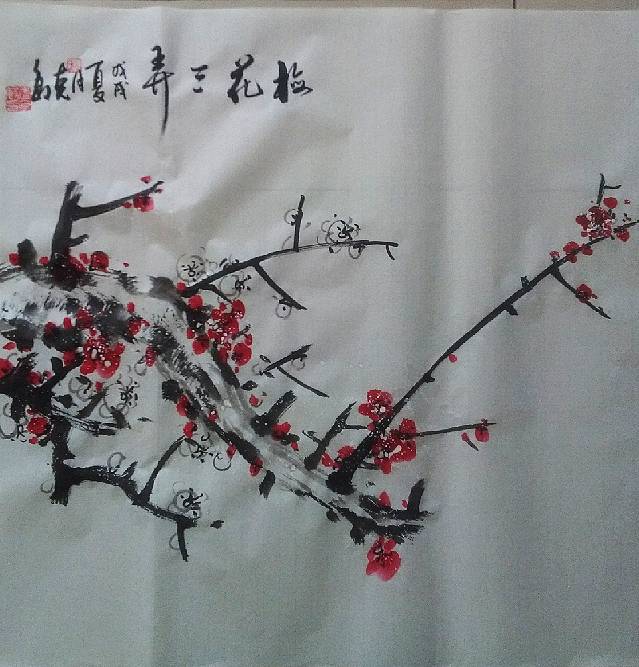 梅花三弄
戊戌
夏月